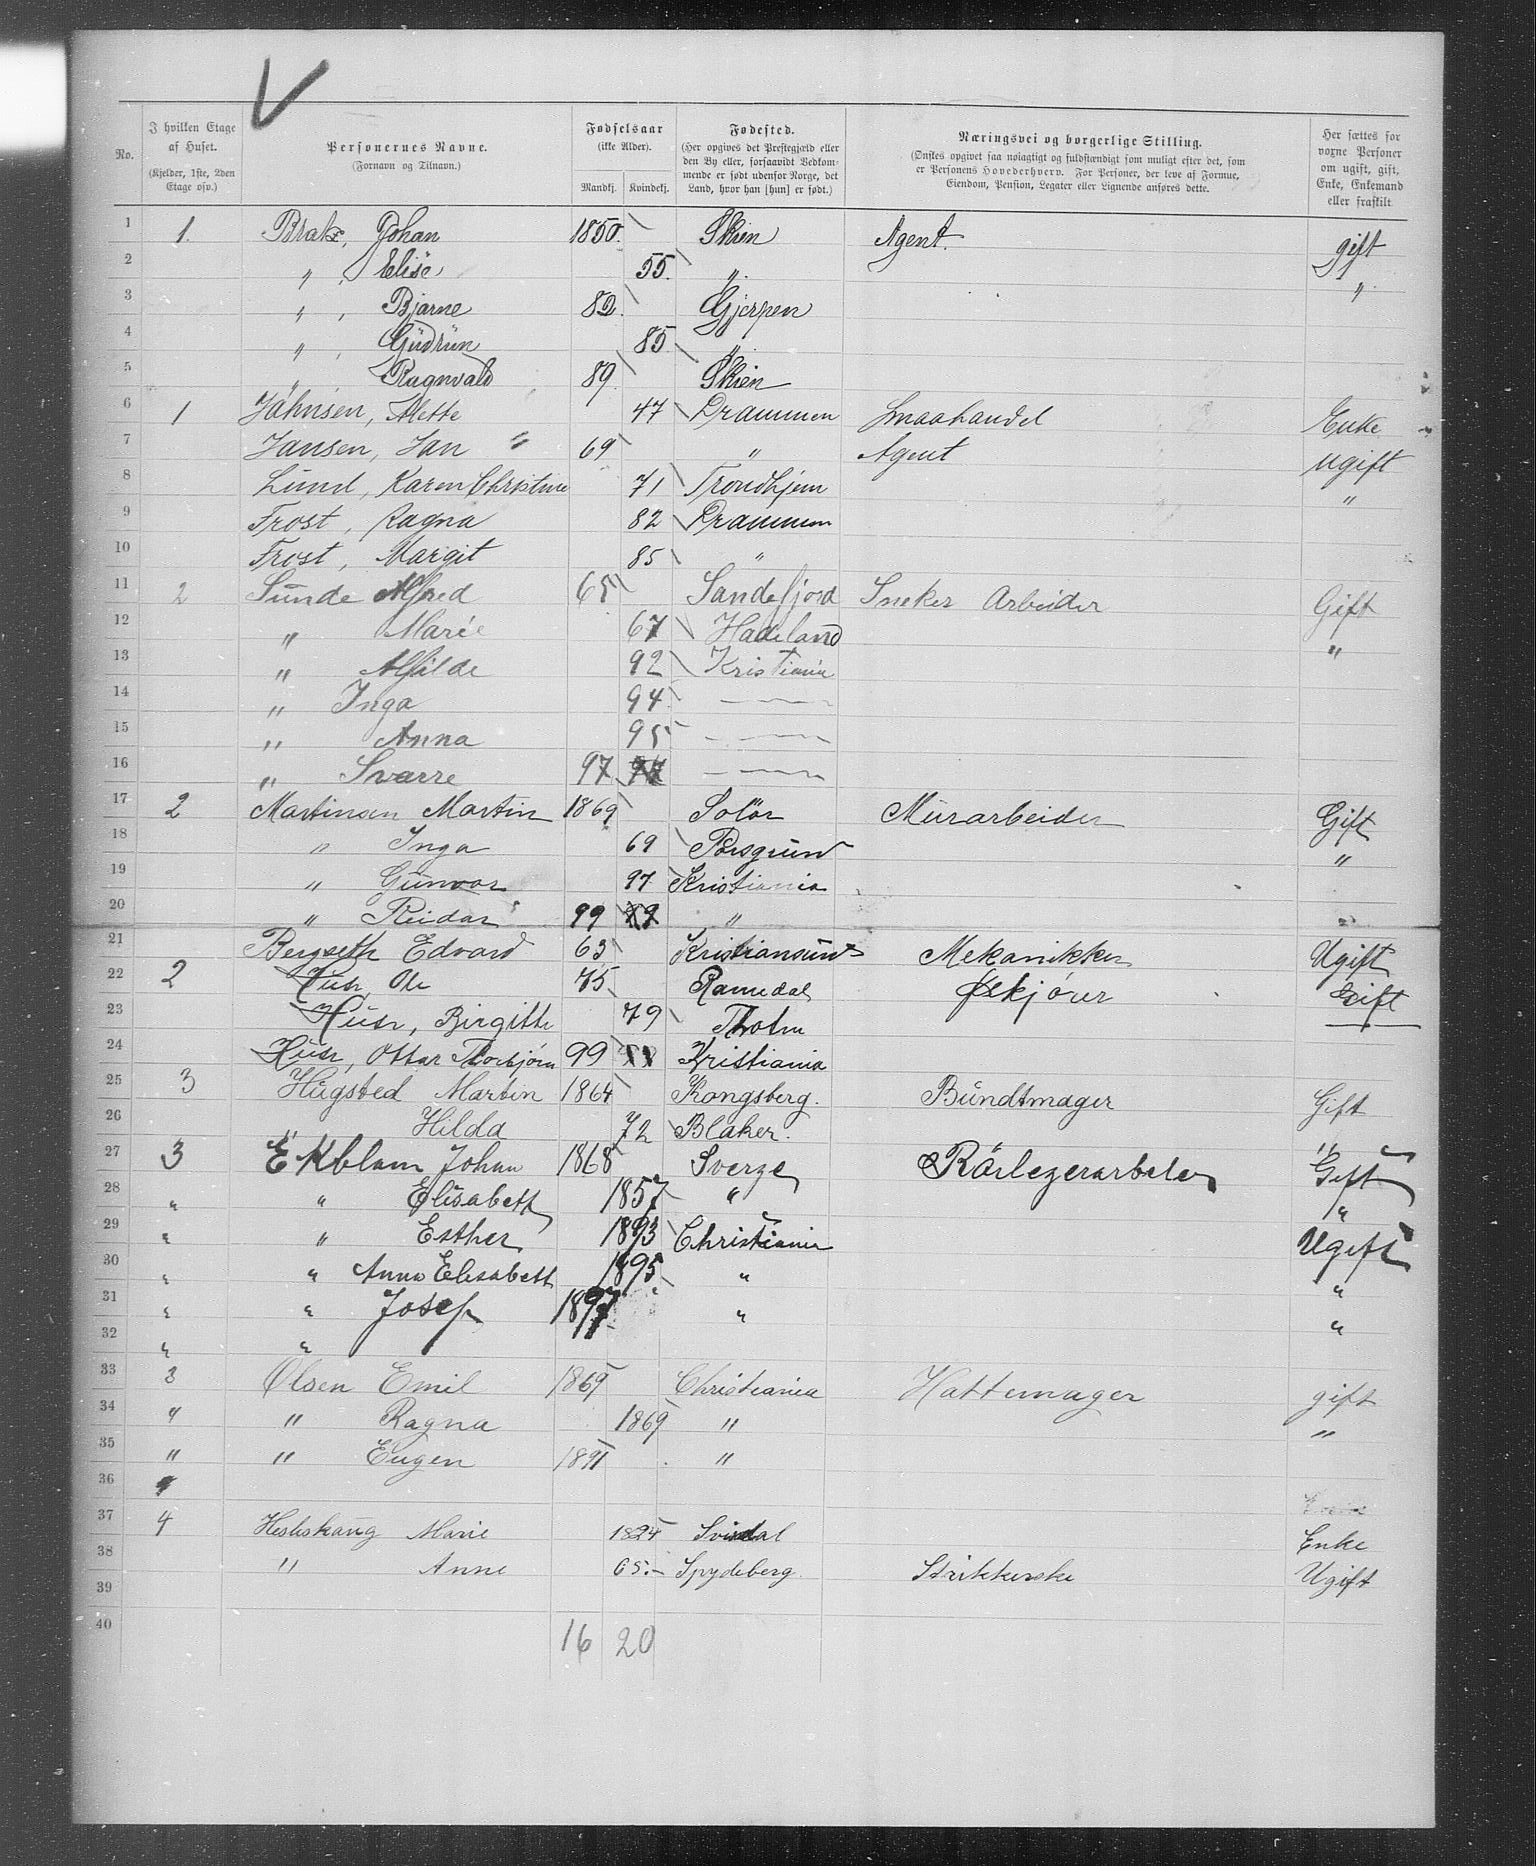 No.
I hvilken Etage af Huset.
(Kjelder, 1ste, 2den Etage osv.)
Personernes Navne.
(Fornavn og Tilnavn.)
Fødselsaar
(ikke Alder).
Mandkj. Kvindekj.
Fødested.
(Her opgives det Prestegjæld eller den By eller, forsaavidt Vedkommende er født udenfor Norge, det Land, hvor han [hun] er født.)
Næringsvei og borgerlige Stilling.
(Ønskes opgivet saa nøiagtigt og fuldstændigt som muligt efter det, som er Personens Hovederhverv. For Personer, der leve af Formue, Eiendom, Pension, Legater eller Lignende anføres dette.
Her sættes for voxne Personer om ugift, gift, Enke, Enkemand eller fraskilt.
1 1. Johan 1850. Skien Agent. gift
2 " , Elise 55. " "
3 " , Bjarne 82. Gjerpen
4 " , Güdrün 85 "
5 " Ragnvald 89. Skien
6 1 Jahnsen, Mette 47 Drammen Smaahandel Enke
7 Jansen, Jan 69 " Agent ugift
8 Lund, Karen Christine 71 Trondhjem "
9 Frost, Ragna 82 Drammen
10 Frost, Margit 85 "
11 2 Sunde Alfred 65 Sandefjord Sneker Arbeider Gift
12 " Marie 67 Hadeland "
13 " Alfilde 92 Kristiania
14 " Inga 94 —
15 " Anna 95 —
16 " Svarre 97 —
17 2 Martinsen Martin 1869 Solör Mürarbeider Gift
18 " Inga 69 Porsgrund "
19 " Günvor 97 Kristiania
20 " Reidar 99 "
21 Bergseth Edvard 63 Kristiansünd Mekanikker Ugift
22 2 Ole 75 Ramedal Ølkjörer Gift
23 Birgitte 79 Tholm
24 Ottar Thorbjørn 99 Kristiania
25 3 Hügsted Martin 1864 Kongsberg. Bündtmager Gift
26 " Hilda 72 Blaker. "
27 3 Ekblom Johan 1868 Sverge Rörlegerarbeder Gift
28 " " Elisabett 1857 " "
29 " " Esther 1893 Christiania Ugift
30 " " Anna Elisabett 1895 " "
31 " " Josef 1897 " "
32 " "
33 3 Olsen Emil 1869 Christiania Hattemager gift
34 " " Ragna 1869 " "
35 " " Eugen 1891 "
36
37 4 Marie 1824 Enke
38 " Anne 65. Spydeberg Strikkerske Ugift
39
40
16 20